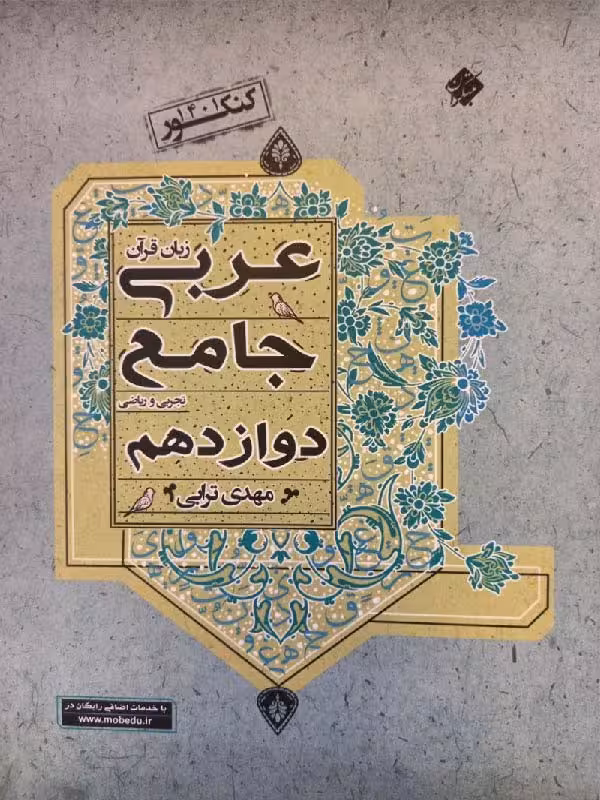 کنکور ۱۴۰۱
مبتکران
زبان قرآن
عربی
جامع
تجربی و ریاضی
دوازدهم
مهدی ترابی
با خدمات اضافی رایگان در
www.mobedu.ir